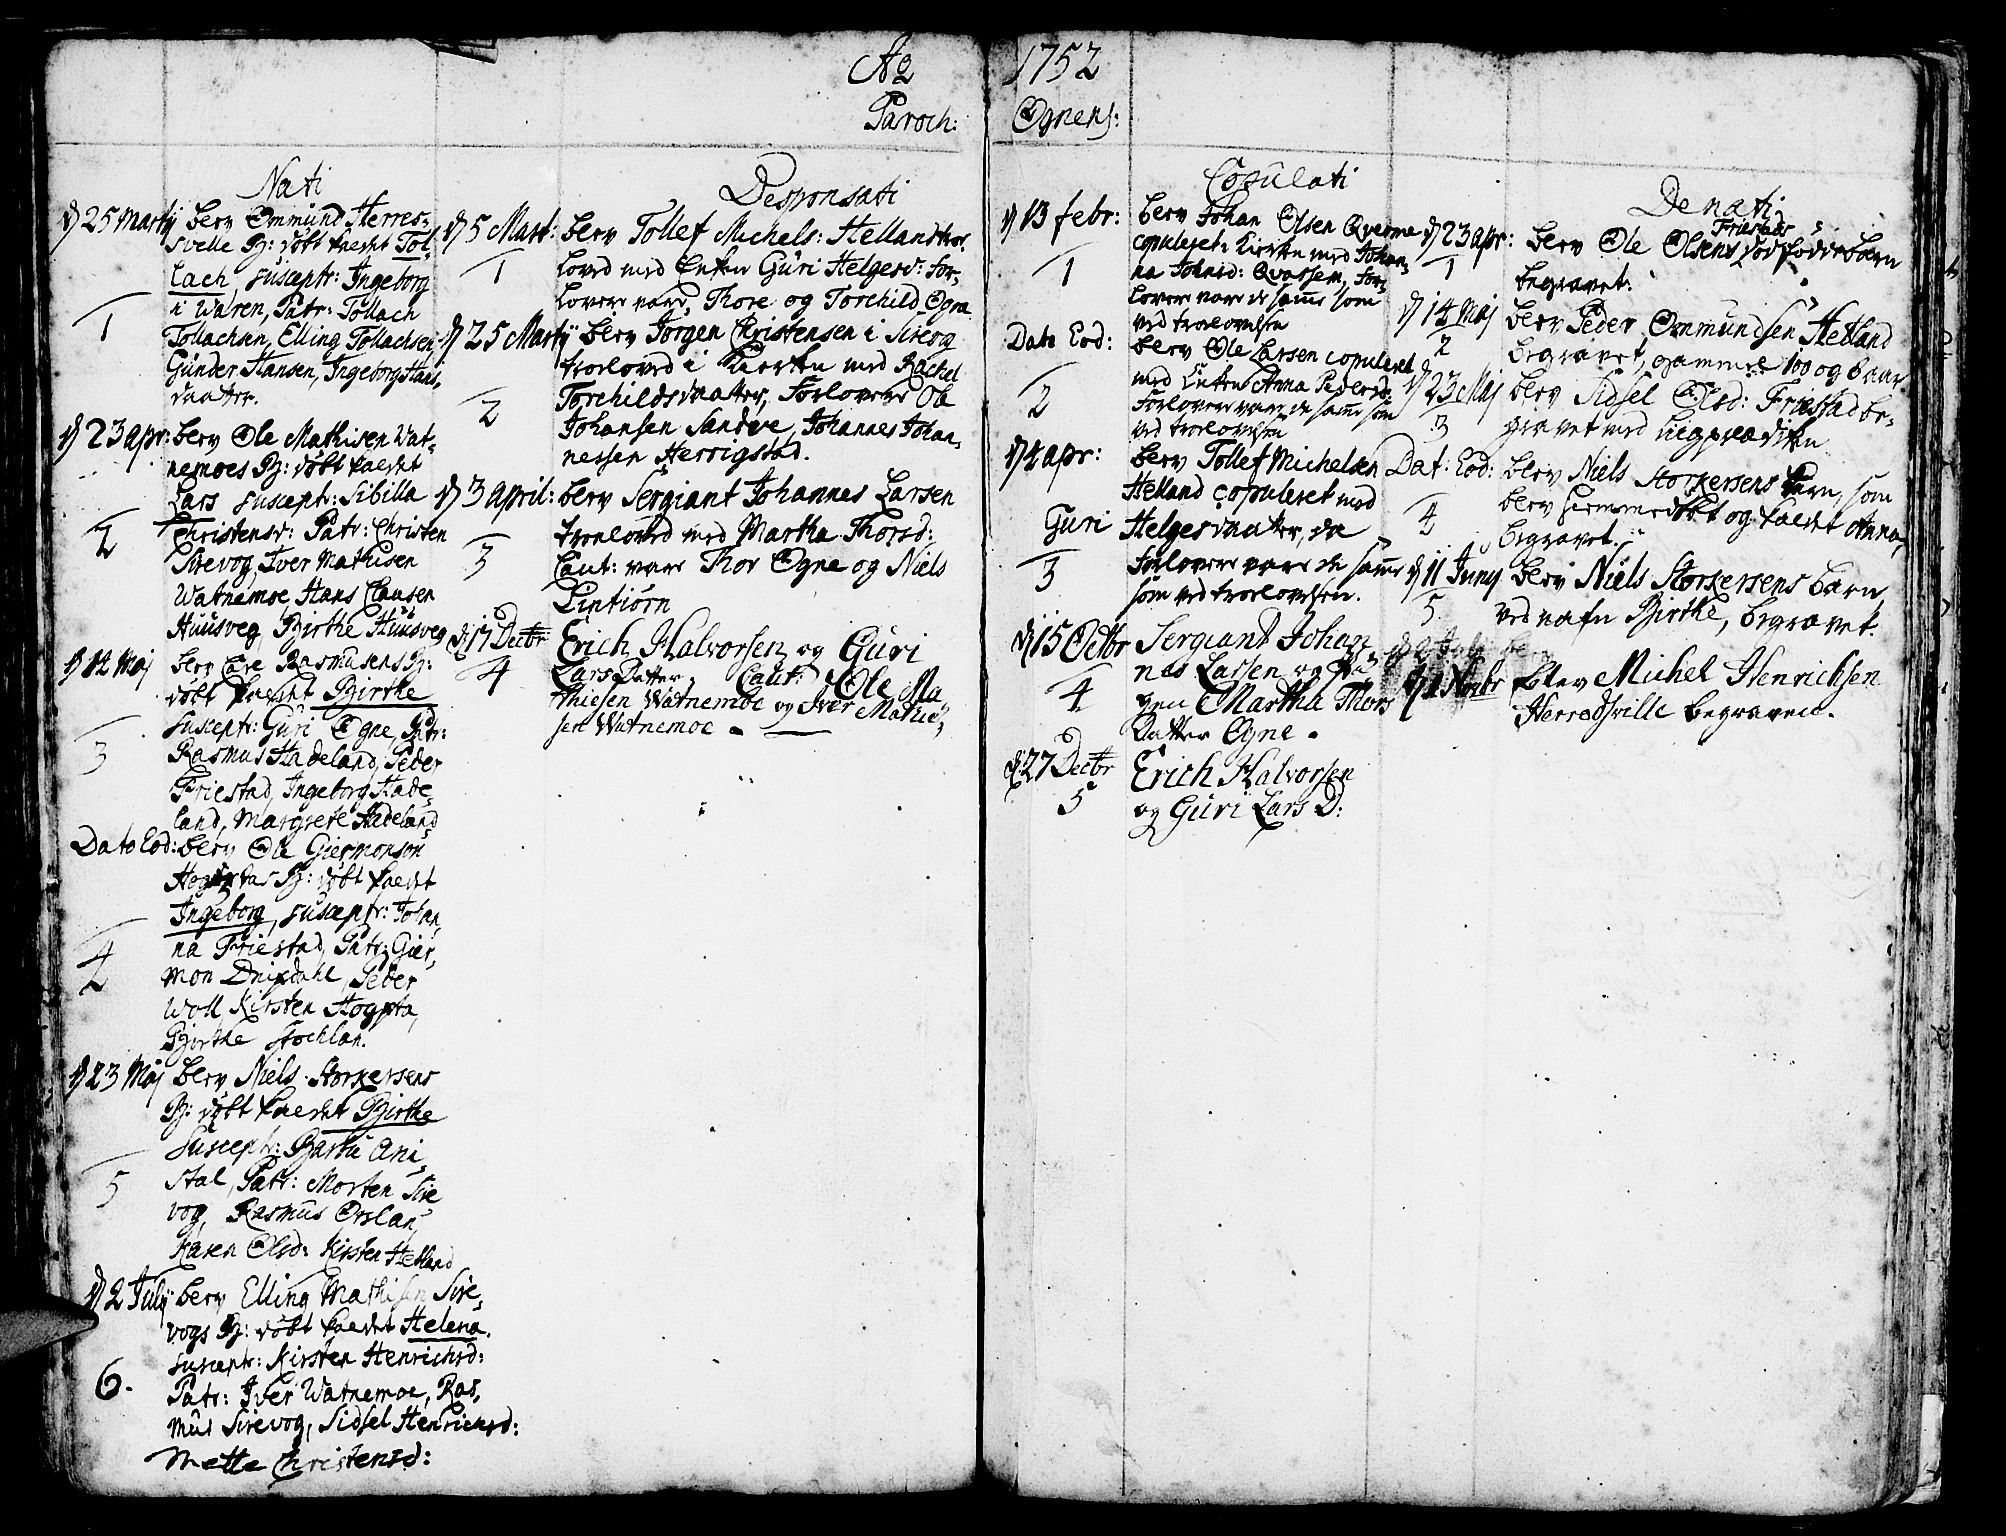 Aö 1752
Paroch: Ognens:
Nati
d 25 Martij blev Ommund Herres-
svelle B: döbt kaldet Tol-
lach, suscept: Ingeborg
i Waren, Patr: Tollach
1
Tollachsen, Elling Tollachsen
Gunder Hansen, Ingeborg Hans,
daatter.
d 23 apr: blev Ole Mathisen Wat-
nemoes B: döbt kaldet
Lars suscept: Sibilla
2 Christensd: Patr: Christen
Sirevog, Iver Mathisen
Watnemoe, Hans Clausen
Huusveg, Birthe Huusveg
d 14 Maj blev Ole Rasmusens B:
döbt kaldet Birthe
suscept: Guri Ogne, Patr:
3 Rasmus Hadeland, Peder
Friestad, Ingeborg Hade-
land, Margrete Hadeland
Dato Eod: blev Ole Giermonson
B: döbt kaldet
Ingeborg, suscept: Johan,
4 na Friestad, Patr: Gier,
mon Dripdahl, Peder
Woll Kirsten Hogsta,
Birthe Stochlan.
d 23 Maj blev Niels Storkersens
B: döbt kaldet Birthe
Suscept: Bartu Ani,
5 stal, Patr: Morten Sire
vog, Rasmus Orslan,
Karen Olsd: Kirsten Hetland
d 2 July blev Elling Mathisen Sire,
vogs B: döbt kaldet Helena.
suscept: Kirsten Henrichsd:
6. Patr: Iver Watnemoe, Ras,
mus Sirevog, Sidsel Henrichsd:
Mette Christensd:
Desponsati
d 5 Mart: blev Tollef Michels: Helland troe
1 lovd med Enken Guri Helgesd: For-
lovere vare, Thore og Torchild Ogna
d 25 Martij blev Jorgen Christensen i Sirevog
troelovd i Kierken med Rachel
2 Torchildsdaatter, Forlovere Ole
Johansen Sandve, Johannes Johan,
nessen Herrigstad.
d 3 april: blev Sergiant Johannes Larsen
troelovd med Martha Thorsd:
3 Caut: vare Thor Ogne og Niels
Lintiörn
d 17 Decbr Erich Halvorsen og Guri
4 Lars Datter Caut: Ole Ma
thiesen Watnemoe og Iver Mathie-
sen Watnemoe.
Copulati
d 13 febr: blev Johan Olsen Qverme
copuleret i Kierken med Johan-
1 na Johnsd: Qvassem, For-
lovere vare de samme som
ved troelovelsen
Dato Eod: blev Ole Larsen copuleret
med Enken Anna Pedersd:
2 Forlovere vare de samme som
ved troelovelsen
d 4 apr: blev Tollef Michelsen
Helland copuleret med
Guri Helgesdaatter, de
3 Forlovere vare de samme
som ved troelovelsen.
d 15 Octbr Sergiant Johan
nes Larsen og Pi-
4 gen Martha Thors
Datter Ogne.
d 27 Decbr Erich Halvorsen
5 og Guri Lars D:
Denati
Friestads
d 23 apr: blev Ole Olsens dodfödde barn
1 begravet.
d 14 Maj blev Peder Ommundsen Hetland
2 begravet, gammel 100 og 6 aar
d 23 Maj blev Sidsel Olsd: Friestad be-
3 gravet med Liigprædiken
Dat: Eod: blev Niels Storkersens barn, som
4 blev hiemmedöbt og kaldet Anna,
begravet.
d 11 Juny blev Niels Storkersens barn,
5 ved nafn Birthe, begravet.
d 1 Novbr blev Michel Henrichsen
Herredsville begraven.